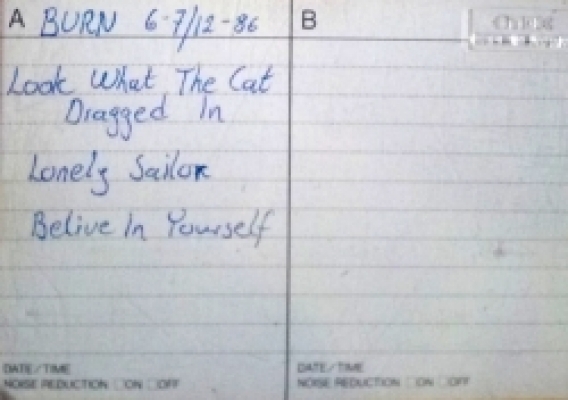 A BURN 6-7/12-86
Look What The Cat
Dragged In
Lonely Sailor
Belive In Yourself
DATE/TIME
NOISE REDUCTION ☐ON ☐OFF
B
DATE/TIME
NOISE REDUCTION ☐ON ☐OFF